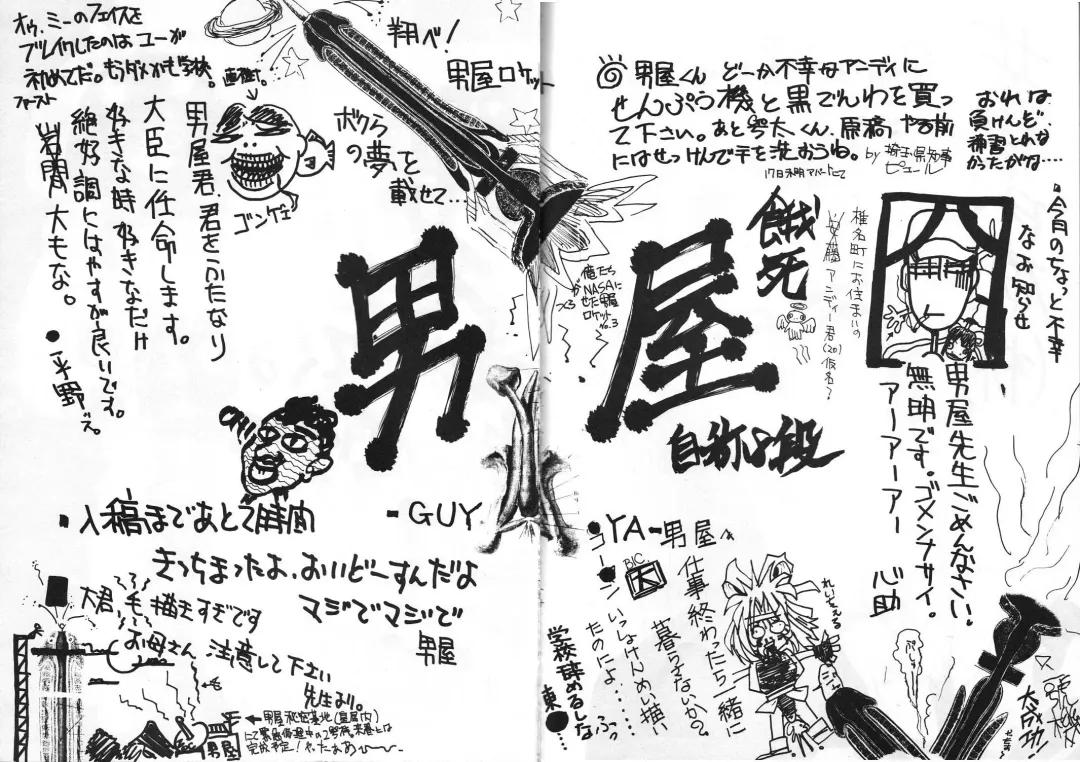 オゥ、ミーのフェイスを
ブレイクしたのは ユーが
初めてだ。もうダメかも学校。
ファースト
直樹。
翔べ！
男屋ロケット
ボクら
の夢を
載せて…
ゴンゲェ
男屋君、君をふたなり
大臣に任命します。
好きな時 好きなだけ
絶好調にはやすが良いです。
岩間 大もな。
●平野ぇ。
男屋
俺たち
がNASAに
せた男屋
ロケット
No.3
男屋くん どーか不幸なアンディに
せんぷう機と黒でんわを買っ
て下さい。あと 太くん、原稿やる前
にはせっけんで手を洗おうね。
by 埼玉県知事
ピュール
17日未明アパートにて
おれは
負けんど、
補習とれな
かったがな……
・今月のちょっと不幸
なお知らせ
餓死
椎名町にお住まいの
安藤 アンディー君(20)仮名
自称8段
男屋先生ごめんなさい。
無明です。ゴメンナサイ。
アーアーアーアー 心助
・入稿まであと2時間
-GUY
きっちまったよ、おいどーすんだよ
マジでマジで
男屋
大君、毛 描きすぎです
お母さん 注意して下さい
先生より。
←男屋秘密基地（皇居内）
にて
完成予定！やったぁぁ〜〜
男屋
●YA-男屋へ
仕事 終わったら一緒に
暮らさないか。
コーシン いっしょけんめい描い
たのによ……
BIC
学校 辞めるしな ふっ
東●…
れいちぇる
号機
大成功！